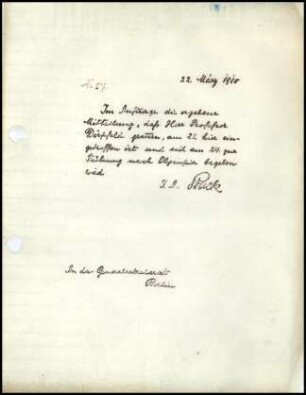 22. März 1910
No 27.
Im Auftrage die ergebene
Mitteilung, daß Herr Professor
Dörpfeld gestern, am 21. hier ein-
getroffen ist und sich am 24. zur
Führung nach Olympia begeben
wird
I. A. 
An das Generalsekretariat
Berlin